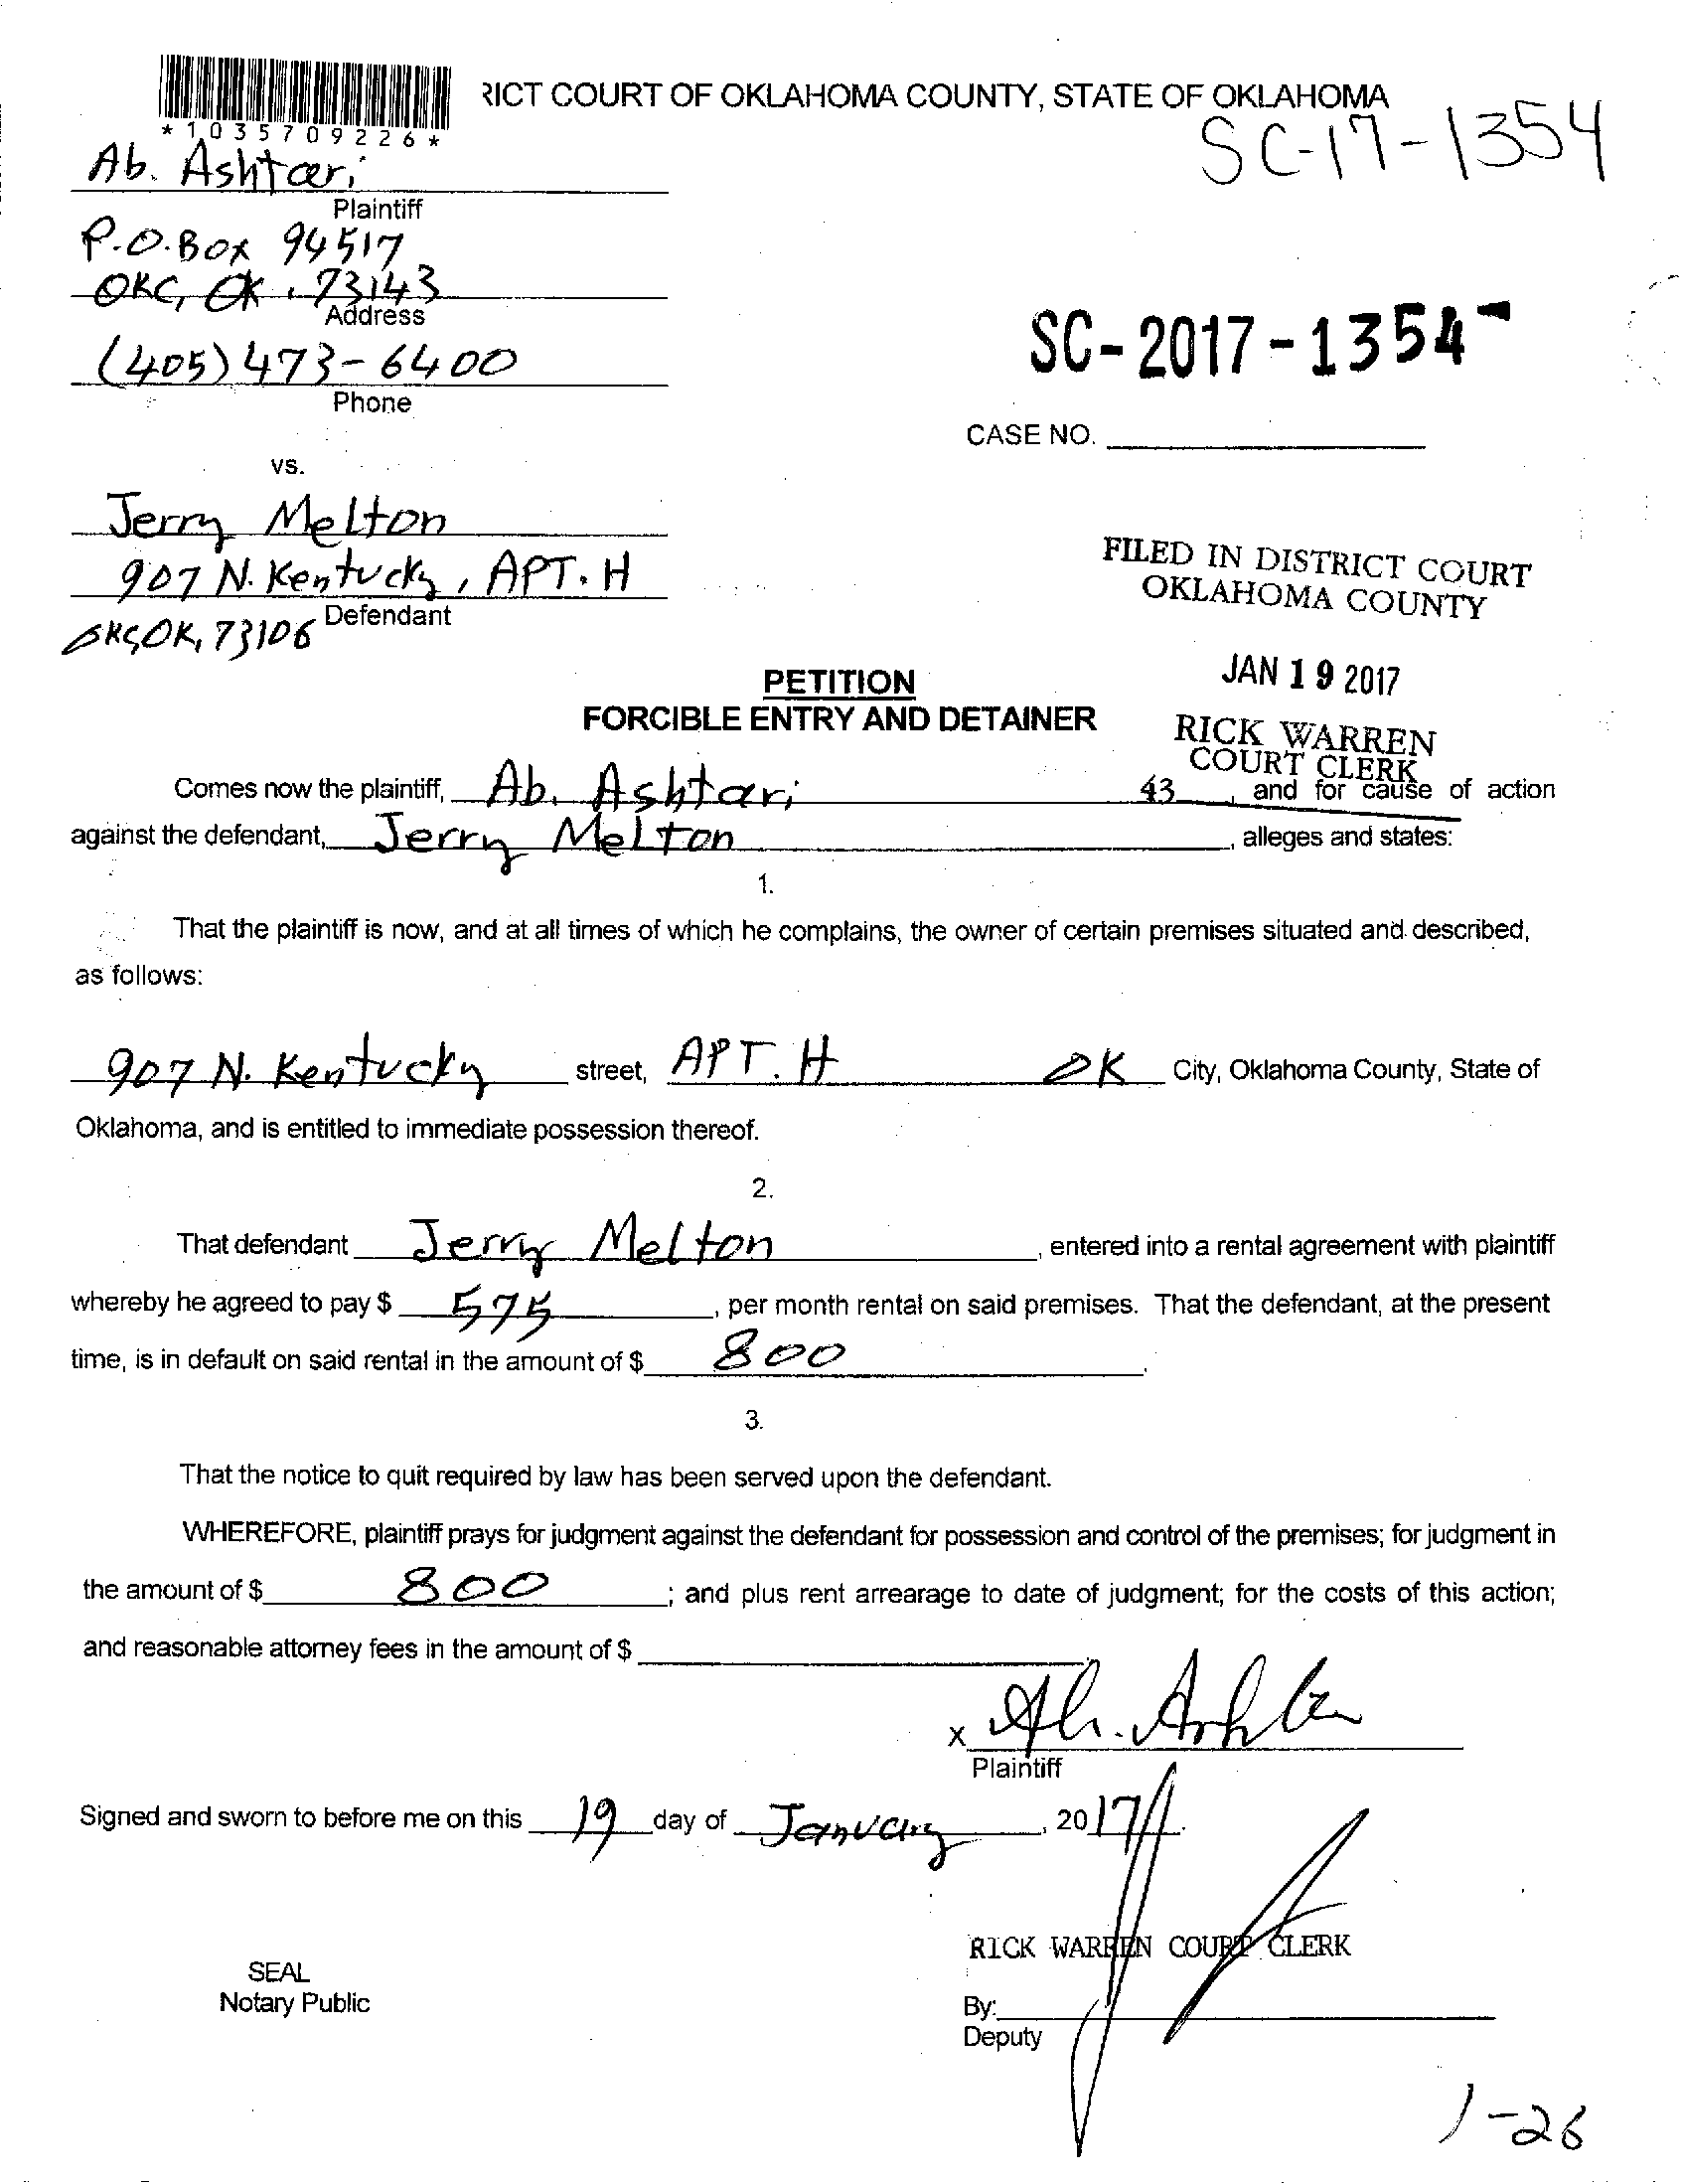 RICT COURT OF OKLAHOMA COUNTY, STATE OF OKLAHOMA
*1035709226*
SC-17-1354
Ab. Ashtari
Plaintiff
P.O.Box 94517
OKC, OK. 73143
Address
(405) 473-6400
Phone
SC-2017-1354
CASE NO.
vs.
Jerry Melton
907 N. Kentucky, APT. H
Defendant
OKC, OK, 73106
FILED IN DISTRICT COURT
OKLAHOMA COUNTY
JAN 19 2017
RICK WARREN
COURT CLERK
43
PETITION
FORCIBLE ENTRY AND DETAINER
Comes now the plaintiff, Ab. Ashtari, and for cause of action
against the defendant, Jerry Melton, alleges and states:
1.
That the plaintiff is now, and at all times of which he complains, the owner of certain premises situated and described,
as follows:
907 N. Kentucky street, APT. H OK City, Oklahoma County, State of
Oklahoma, and is entitled to immediate possession thereof.
2.
That defendant Jerry Melton, entered into a rental agreement with plaintiff
whereby he agreed to pay $ 575, per month rental on said premises. That the defendant, at the present
time, is in default on said rental in the amount of $ 800.
3.
That the notice to quit required by law has been served upon the defendant.
WHEREFORE, plaintiff prays for judgment against the defendant for possession and control of the premises; for judgment in
the amount of $ 800; and plus rent arrearage to date of judgment; for the costs of this action;
and reasonable attorney fees in the amount of $
x Ab. Ashtari
Plaintiff
Signed and sworn to before me on this 19 day of January, 2017.
RICK WARREN COURT CLERK
SEAL
Notary Public
By:
Deputy
1-26